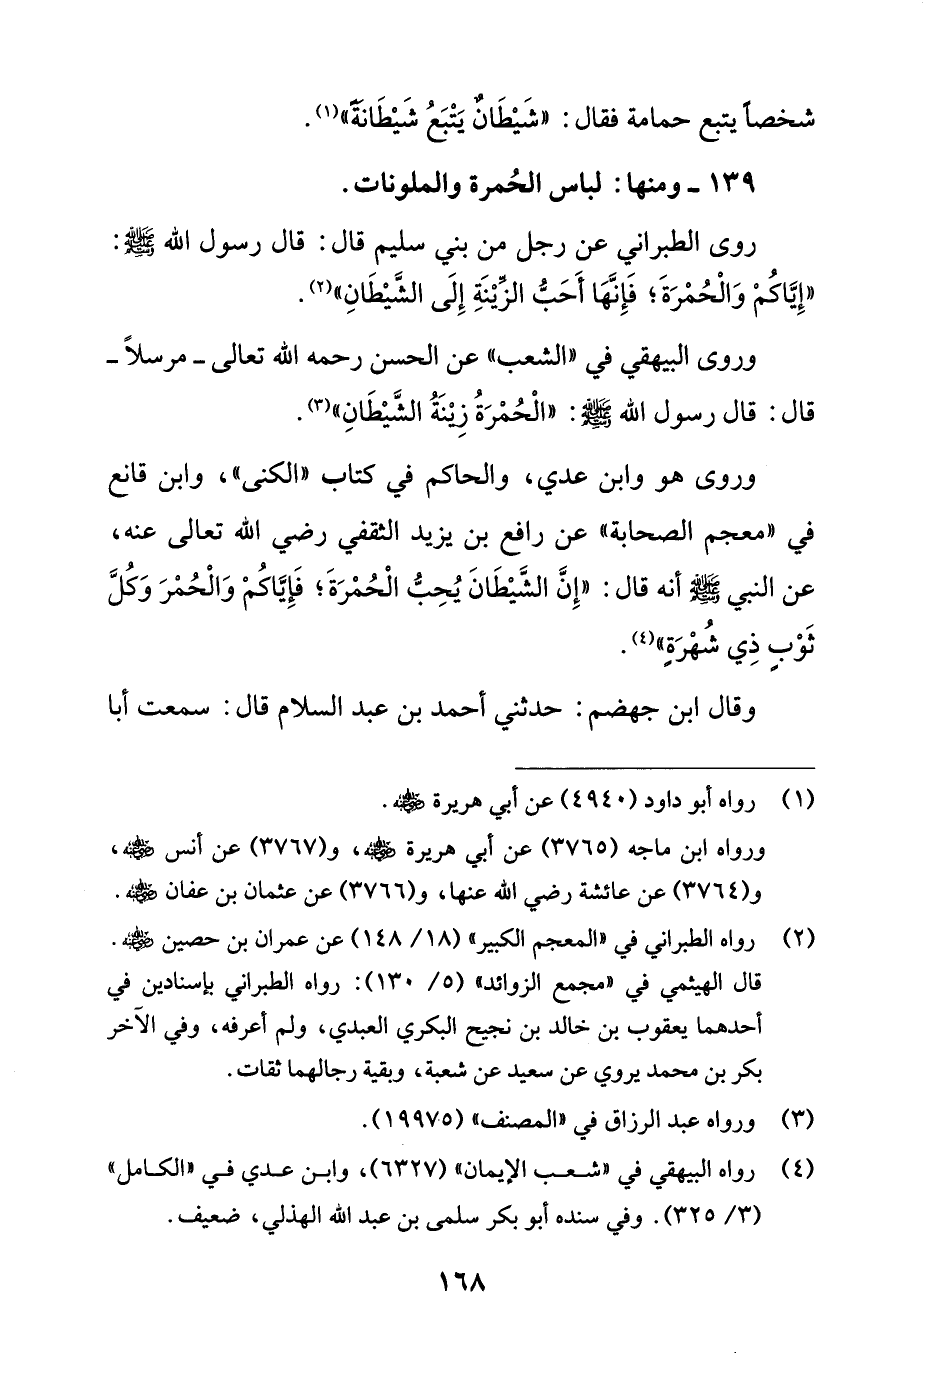 شخصاً يتبع حمامة فقال: «شَيْطَانٌ يَتْبَعُ شَيْطَانَةً»(١).
١٣٩ ـ ومنها: لباس الحُمرة والملونات.
روى الطبراني عن رجل من بني سليم قال: قال رسول الله ﷺ:
«إِيَّاكُمْ وَالْحُمْرَةَ؛ فَإِنَّهَا أَحَبُّ الزِّيْنَةِ إِلَى الشَّيْطَانِ»(٢).
وروى البيهقي في «الشعب» عن الحسن رحمه الله تعالى ـ مرسلاً ـ
قال: قال رسول الله ﷺ: «الْحُمْرَةُ زِيْنَةُ الشَّيْطَانِ»(٣).
وروى هو وابن عدي، والحاكم في كتاب «الكنى»، وابن قانع
في «معجم الصحابة» عن رافع بن يزيد الثقفي رضي الله تعالى عنه،
عن النبي ﷺ أنه قال: «إِنَّ الشَّيْطَانَ يُحِبُّ الْحُمْرَةَ؛ فَإِيَّاكُمْ وَالْحُمْرَ وَكُلَّ
ثَوْبٍ ذِي شُهْرَةٍ»(٤).
وقال ابن جهضم: حدثني أحمد بن عبد السلام قال: سمعت أبا
(١) رواه أبو داود (٤٩٤٠) عن أبي هريرة ﵁.
ورواه ابن ماجه (٣٧٦٥) عن أبي هريرة ﵁، و(٣٧٦٧) عن أنس ﵁،
و(٣٧٦٤) عن عائشة رضي الله عنها، و(٣٧٦٦) عن عثمان بن عفان ﵁.
(٢) رواه الطبراني في «المعجم الكبير» (١٨/ ١٤٨) عن عمران بن حصين ﵁.
قال الهيثمي في «مجمع الزوائد» (٥/ ١٣٠): رواه الطبراني بإسنادين في
أحدهما يعقوب بن خالد بن نجيح البكري العبدي، ولم أعرفه، وفي الآخر
بكر بن محمد يروي عن سعيد عن شعبة، وبقية رجالهما ثقات.
(٣) ورواه عبد الرزاق في «المصنف» (١٩٩٧٥).
(٤) رواه البيهقي في «شعب الإيمان» (٦٣٢٧)، وابن عدي في «الكامل»
(٣/ ٣٢٥). وفي سنده أبو بكر سلمى بن عبد الله الهذلي، ضعيف.
١٦٨